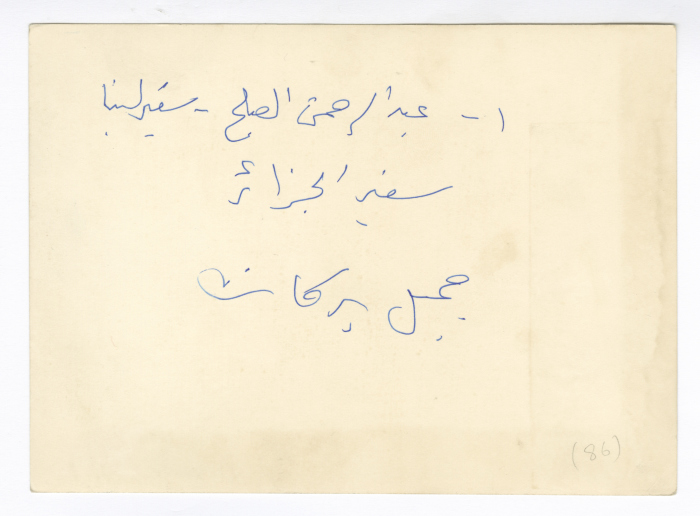 ١- عبد الرحمن الصلح - سفير لبنا
سفير الجزائر
جميل بركات
(86)